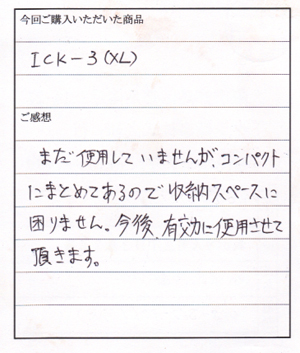 今回ご購入いただいた商品
ICK-3(XL)
ご感想
まだ使用していませんが、コンパクト
にまとめてあるので収納スペースに
困りません。今後、有効に使用させて
頂きます。